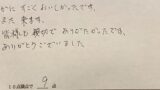 かに すごく おいしかったです。
また 来ます。
皆様も 親切で ありがたかったです。
ありがとうございました
９
１０点満点で 点